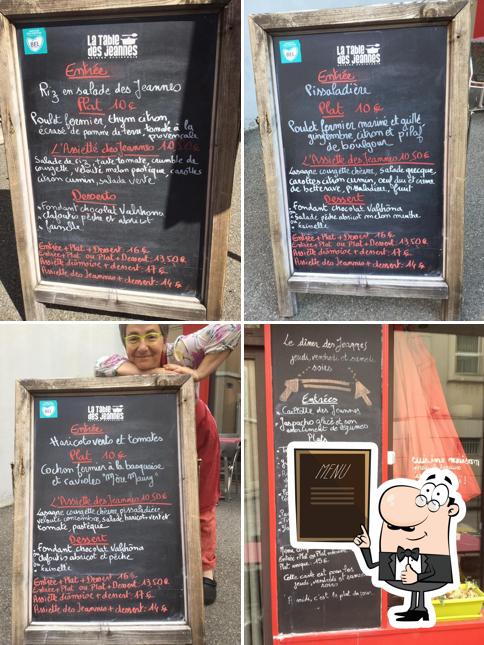 BEL
LA TABLE
DES JEANNES
Entrée
Riz en salade des Jeannes
Plat 10€
Poulet fermier thym citron
écrasé de pomme de terre tomate à la
provençale
L'Assiette des Jeannes 10.50€
Salade de riz, tarte tomate, crumble de
courgette, velouté melon pastèque, carottes
citron cumin, salade verte
Desserts
Fondant chocolat Valrhona
clafoutis pêche et abricot
faisselle
Entrée + Plat + Dessert 16€
Entrée + Plat ou Plat + Dessert 13.50€
Assiette des Jeannes + dessert: 14€
BEL
LA TABLE
DES JEANNES
Entrée
Pissaladière
Plat 10€
Poulet fermier mariné et grillé
gingembre citron et pilaf
de boulgour
L'Assiette des Jeannes 10.50€
Lasagne courgette chèvre, salade grecque
carottes citron cumin, oeuf dur et crème
de betterave, pissaladière, fruit
Dessert
Fondant chocolat Valrhona
ou Salade pêche abricot melon menthe
ou faisselle
Entrée + Plat + Dessert 16€
Entrée + Plat ou Plat + Dessert 13.50€
Assiette des Jeannes + dessert: 14€
BEL
LA TABLE
DES JEANNES
Entrée
Haricots verts et tomates
Plat 10€
Cochon fermier à la basquaise
et ravioles "Mère Maury"
L'Assiette des Jeannes 10.50€
Lasagne courgette chèvre, pissaladière,
velouté concombre, salade haricot vert et
tomate, pastèque
Dessert
Fondant chocolat Valrhona
ou clafoutis abricot et pêche
ou faisselle
Entrée + Plat + Dessert 16€
Entrée + Plat ou Plat + Dessert 13.50€
Assiette des Jeannes + dessert: 14€
Le dîner des Jeannes
jeudi, vendredi et samedi
soirs
Entrées
Caillette des Jeannes
Gaspacho glacé et son
assortiment de légumes
Plats
MENU
Cette carte est pour les
soirs
A midi, c'est le plat du jour